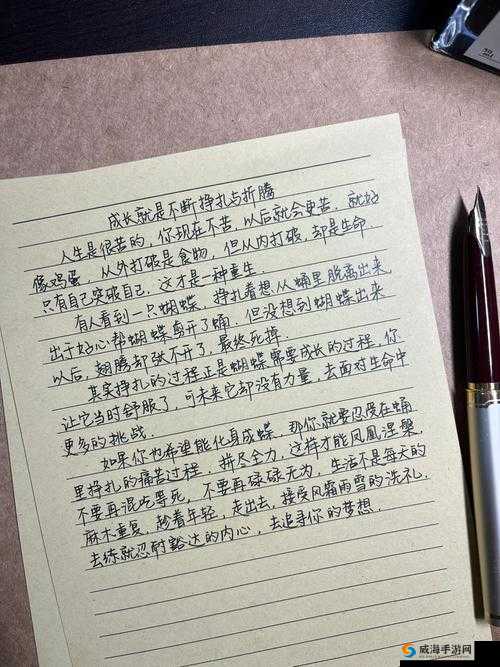 成长就是不断挣扎与折腾
人生是很苦的，你现在不苦，以后就会更苦，就好
像鸡蛋，从外打破是食物，但从内打破，却是生命.
只有自己突破自己，这才是一种重生.
有人看到一只蝴蝶，挣扎着想从蛹里脱离出来，
出于好心帮蝴蝶剪开了蛹，但没想到蝴蝶出来
以后，翅膀却张不开了，最终死掉.
其实挣扎的过程正是蝴蝶需要成长的过程，你
让它当时舒服了，可未来它却没有力量，去面对生命中
更多的挑战.
如果你也希望能化身成蝶，那你就要忍受在蛹
里挣扎的痛苦过程，拼尽全力，这样才能凤凰涅槃.
不要再混吃等死，不要再碌碌无为，生活不是每天的
麻木重复，趁着年轻，走出去，接受风霜雨雪的洗礼，
去练就忍耐豁达的内心，去追寻你的梦想.
威海手游网